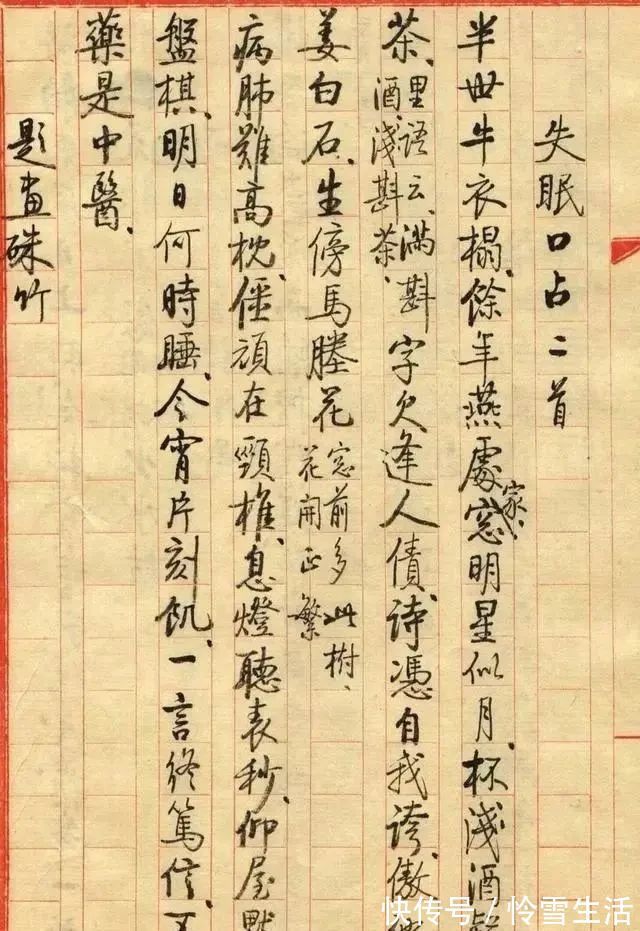 失眠口占二首
半世牛衣榻、餘年燕處家、窓明星似月、杯淺酒
茶、里語云、滿斟酒、淺斟茶、字欠逢人債、詩憑自我誇、傲
姜白石、生傍馬塍花、窓前多此樹、花開正繁
病肺難高枕、僵頑在頸椎、息燈聽表秒、仰屋默
盤棋、明日何時睡、今宵片刻飢、一言終篤信、不
藥是中醫、
題畫硃竹
快传号 / 怜雪生活